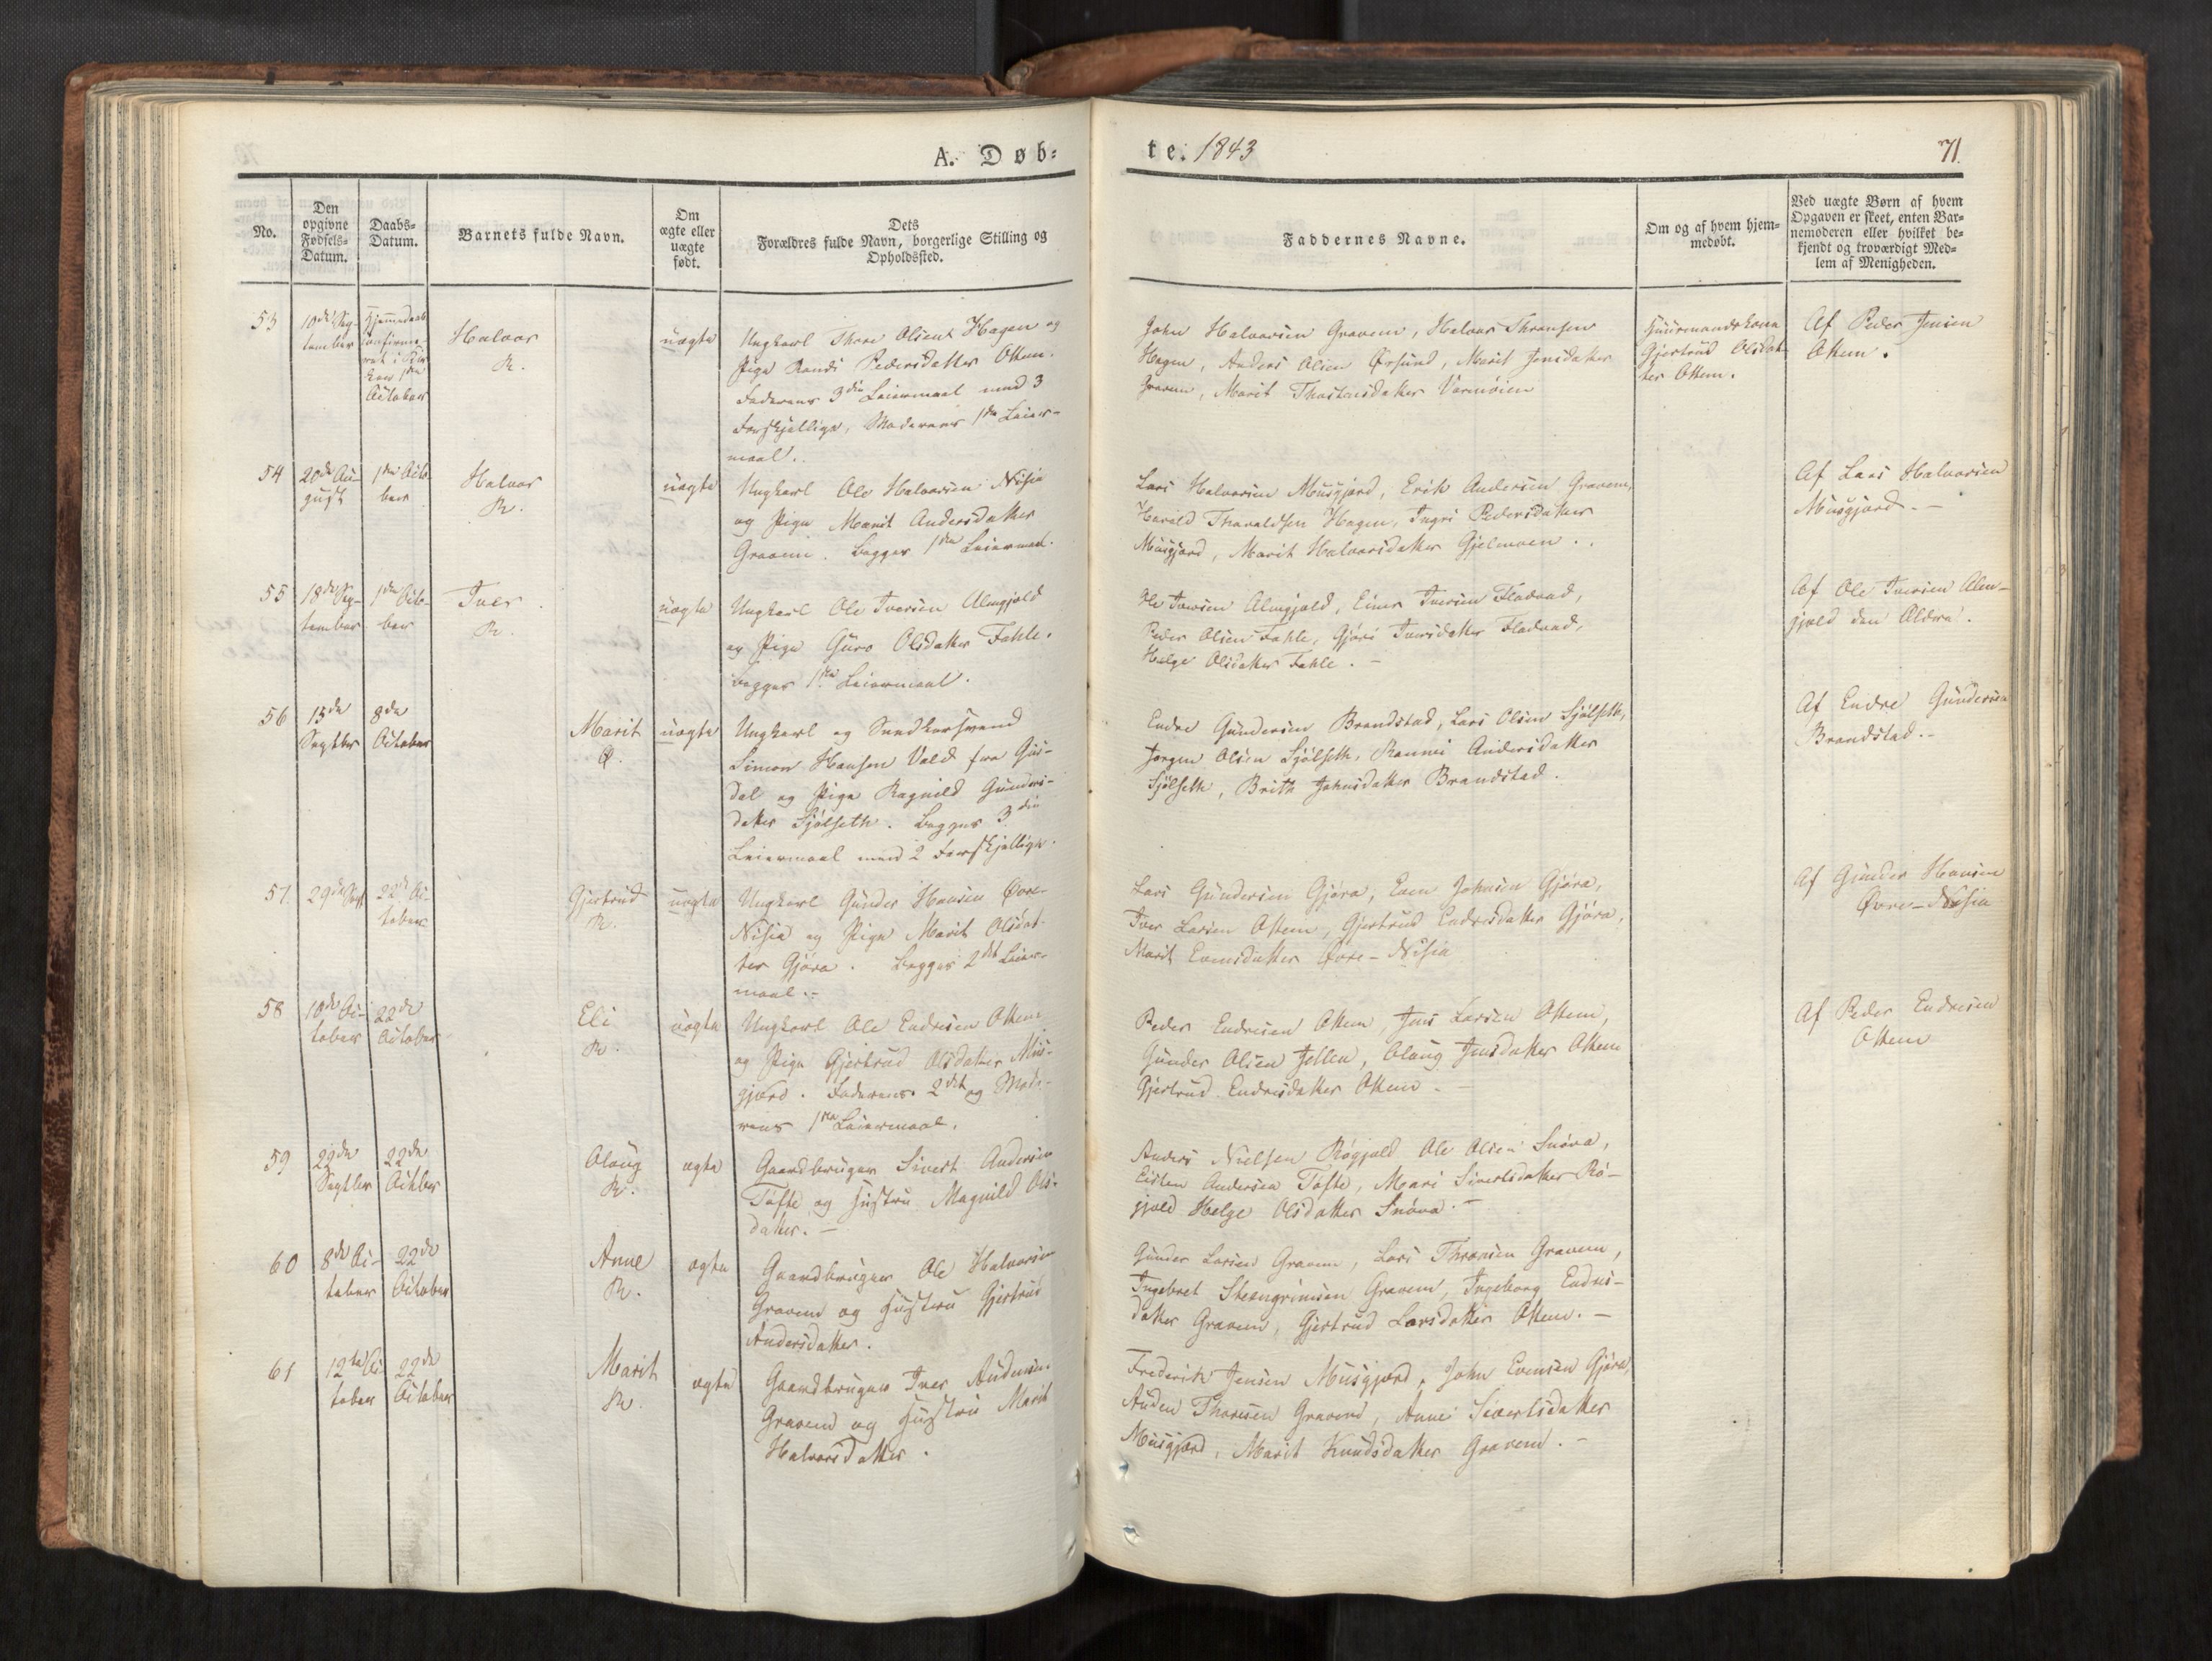 A. Døb=
te. 1843
71.
No.
Den opgivne Fødsels= Datum.
Daabs= Datum.
Barnets fulde Navn.
Om ægte eller uægte født.
Dets Forældres fulde Navn, borgerlige Stilling og Opholdssted.
Faddernes Navne.
Om og af hvem hjem= medøbt.
Ved uægte Børn af hvem Opgaven er skeet, enten Bar= nemoderen eller hvilket be= kjendt og troværdigt Med= lem af Menigheden.
53
10de Sep-
tember
Hjemmedøbt
October
Halvor
R.
uægte
Ungkarl Thore Olsen Hagen og
Pige Randi Pedersdatter Ottem.
Faderens 3die Leiermaal med 3
Forskjellige, Moderens 1ste Leier-
maal.
John Halvorsen Gravem, Halvor Thoresen
Hagen, Anders Olsen Ørsund, Marit Jensdatter
Gravem, Marit Thostensdatter Vermøien
Huusmandskone
Gjertrud Olsdat-
ter Ottem.
Af Peder Jensen
Ottem.
54
20de Au-
gust
1ste Octo-
ber
Halvor
R.
uægte
Ungkarl Ole Halvorsen Nisja
og Pige Marit Andersdatter
Gravem. Begges 1ste Leiermaal.
Lars Halvorsen Musgjerd, Erik Andersen Gravem,
Harald Tharaldsen Hagen, Ingri Pedersdatter
Musgjerd, Marit Halvorsdatter Gjelmoen.
Af Lars Halvorsen
Musgjerd. -
55
18de Sep-
tember
1ste Octo-
ber
Iver
R.
uægte
Ungkarl Ole Iversen Almgjeld
og Pige Guro Olsdatter Fahle.
Begges 1ste Leiermaal.
Ole Iversen Almgjeld, Einer Iversen Fladvad,
Peder Olsen Fahle, Gjøri Iversdatter Fladvad,
Helge Olsdatter Fahle. -
Af Ole Iversen Alm-
gjeld den Ældre.
56
15de
Septbr
8de
October
Marit
Ø.
uægte
Ungkarl og Snedkersvend
Simon Hansen Vold fra Gus-
dal og Pige Ragnild Gunders-
datter Sjølseth. Begges 3die
Leiermaal med 2 Forskjellige.
Endre Gundersen Brandstad, Lars Olsen Sjølseth,
Jørgen Olsen Sjølseth, Rannei Andersdatter
Sjølseth, Brith Johnsdatter Brandstad.
Af Endre Gundersen
Brandstad. -
57
29de Sept
22de Oc-
tober
Gjertrud
R.
uægte
Ungkarl Gunder Hansen Øvre-
Nisja og Pige Marit Olsdat-
ter Gjøra. Begges 2det Leier-
maal. -
Lars Gundersen Gjøra, Even Johnsen Gjøra,
Iver Larsen Ottem, Gjertrud Endresdatter Gjøra,
Marit Evensdatter Øvre-Nisja
Af Gunder Hansen
Øvre-Nisja
58
10de Oc-
tober
22de
October
Eli
R.
uægte
Ungkarl Ole Endresen Ottem
og Pige Gjertrud Olsdatter Mus-
gjerd. Faderens 2det og Mode-
rens 1ste Leiermaal.
Peder Endresen Ottem, Jens Larsen Ottem,
Gunder Olsen Jellen, Olaug Jensdatter Ottem
Gjertrud Endresdatter Ottem. -
Af Peder Endresen
Ottem
59
29de
Septbr
22de
Octbr
Olaug
R.
ægte
Gaardbruger Sivert Andersen
Tofte og Hustru Magnild Ols-
datter. -
Anders Nielsen Røgjeld Ole Olsen Snøva,
Eisten Andersen Tofte, Mari Sivertsdatter Rø-
gjeld Helge Olsdatter Snøva. -
60
8de Oc-
tober
22de
October
Anne
R.
ægte
Gaardbruger Ole Halvorsen
Gravem og Hustru Gjertrud
Andersdatter.
Gunder Larsen Gravem, Lars Thoresen Gravem,
Ingebret Steengrimsen Gravem, Ingeborg Endres-
datter Gravem, Gjertrud Larsdatter Ottem. -
61
12te Oc-
tober
22de
October
Marit
R.
ægte
Gaardbruger Iver Audensen
Gravem og Hustru Marit
Halvorsdatter.
Frederik Jensen Musgjerd, John Evensen Gjøra,
Auden Thoresen Gravem, Anne Sivertsdatter
Musgjerd, Marit Knudsdatter Gravem. -